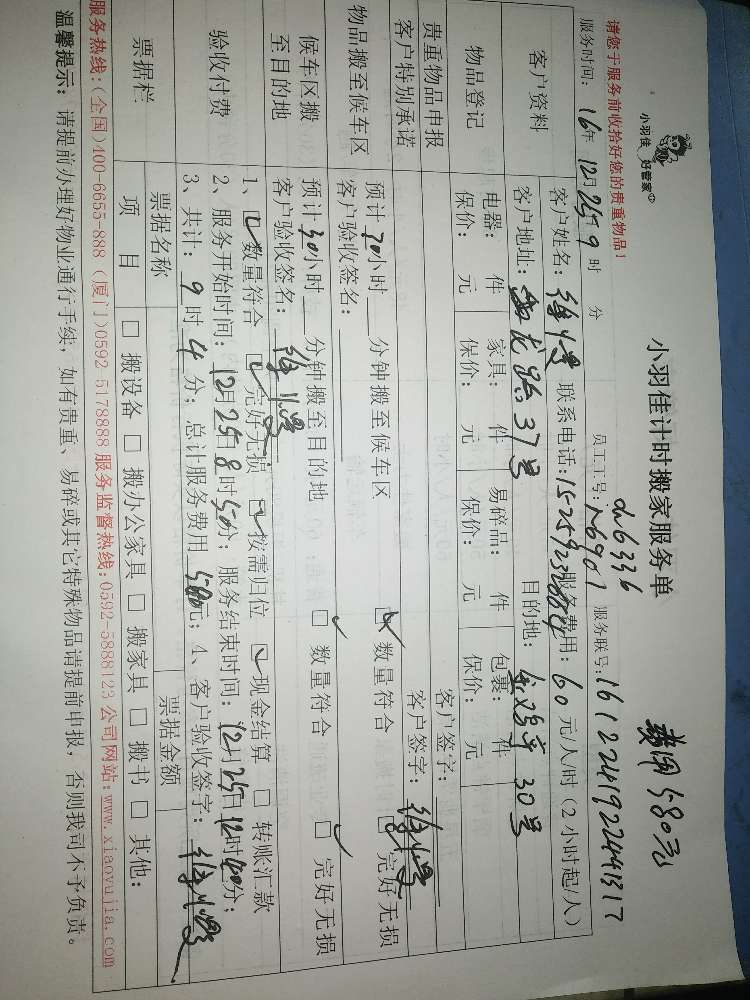 小羽佳 好管家
小羽佳计时搬家服务单
费用580元
请您于服务前收拾好您的贵重物品!
服务时间: 16年12月25日9时 分 员工工号: 服务联号: 1612241922441317
客户资料
客户姓名: 联系电话: 服务费用: 60元/人/时(2小时起/人)
客户地址: 37号 目的地: 金鸡亭30号
物品登记
电器: 件 家具: 件 易碎品: 件 包裹: 件
保价: 元 保价: 元 保价: 元 保价: 元
贵重物品申报 客户签字:
客户特别承诺 客户签字:
物品搬至候车区
预计 小时 分钟搬至候车区 □数量符合 □完好无损
客户验收签名:
候车区搬至目的地
预计 小时 分钟搬至目的地 □数量符合 □完好无损
客户验收签名:
验收付费
1、□数量符合 □完好无损 □按需归位 □现金结算 □转账汇款
2、服务开始时间: 12月25日8时50分; 服务结束时间: 12月25日12时40分;
3、共计: 9时4分; 总计服务费用580元; 4、客户验收签字:
票据栏
票据名称 票据金额
项 目 □搬设备 □搬办公家具 □搬家具 □搬书 □其他:
服务热线:(全国)400-6655-888 (厦门)0592 5178888 服务监督热线:0592-5888123 公司网站:www.xiaoyujia.com
温馨提示: 请提前办理好物业通行手续, 如有贵重、易碎或其它特殊物品请提前申报, 否则我司不予负责。